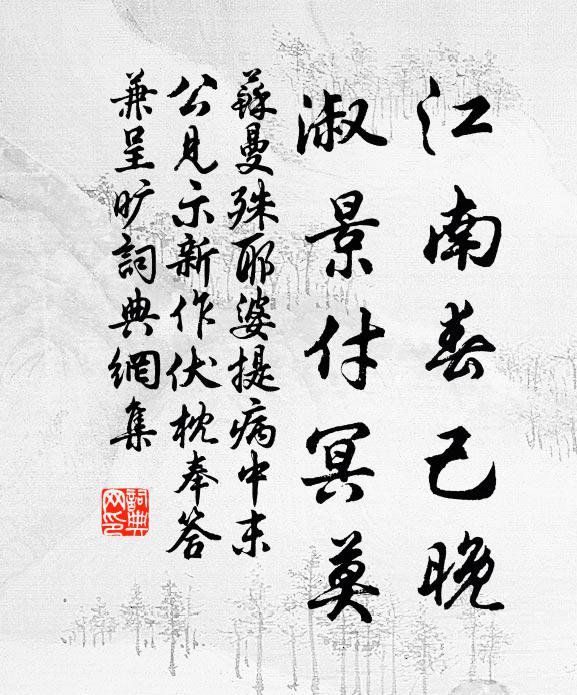 江南春已晚
淑景付冥莫
蘇曼殊耶婆提病中末
公見示新作伏枕奉答
兼呈旷詞典網集
詞典网印